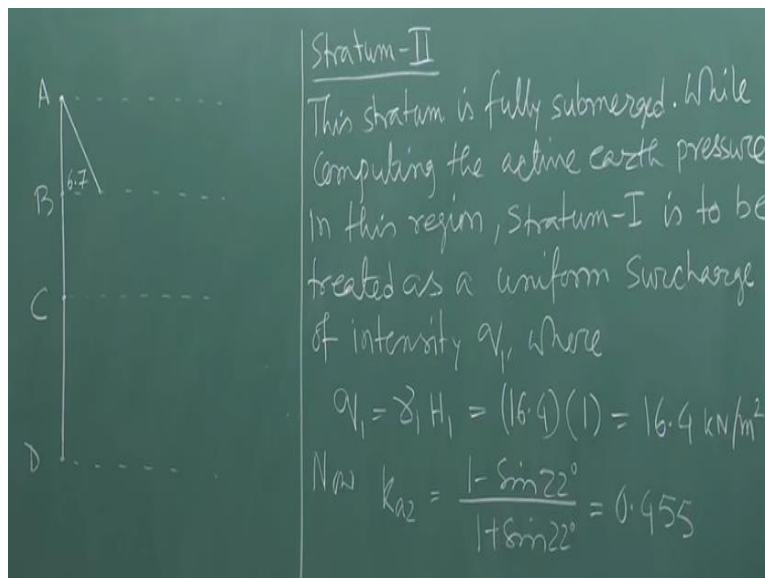 A
6.7
B
C
D
Stratum-II
This stratum is fully submerged. While
computing the active earth pressure
in this region, Stratum-I is to be
treated as a uniform surcharge
of intensity q₁, where
q₁ = γ₁ H₁ = (16.4)(1) = 16.4 kN/m²
Now kₐ₂ = (1 - Sin22°)/(1 + Sin22°) = 0.455